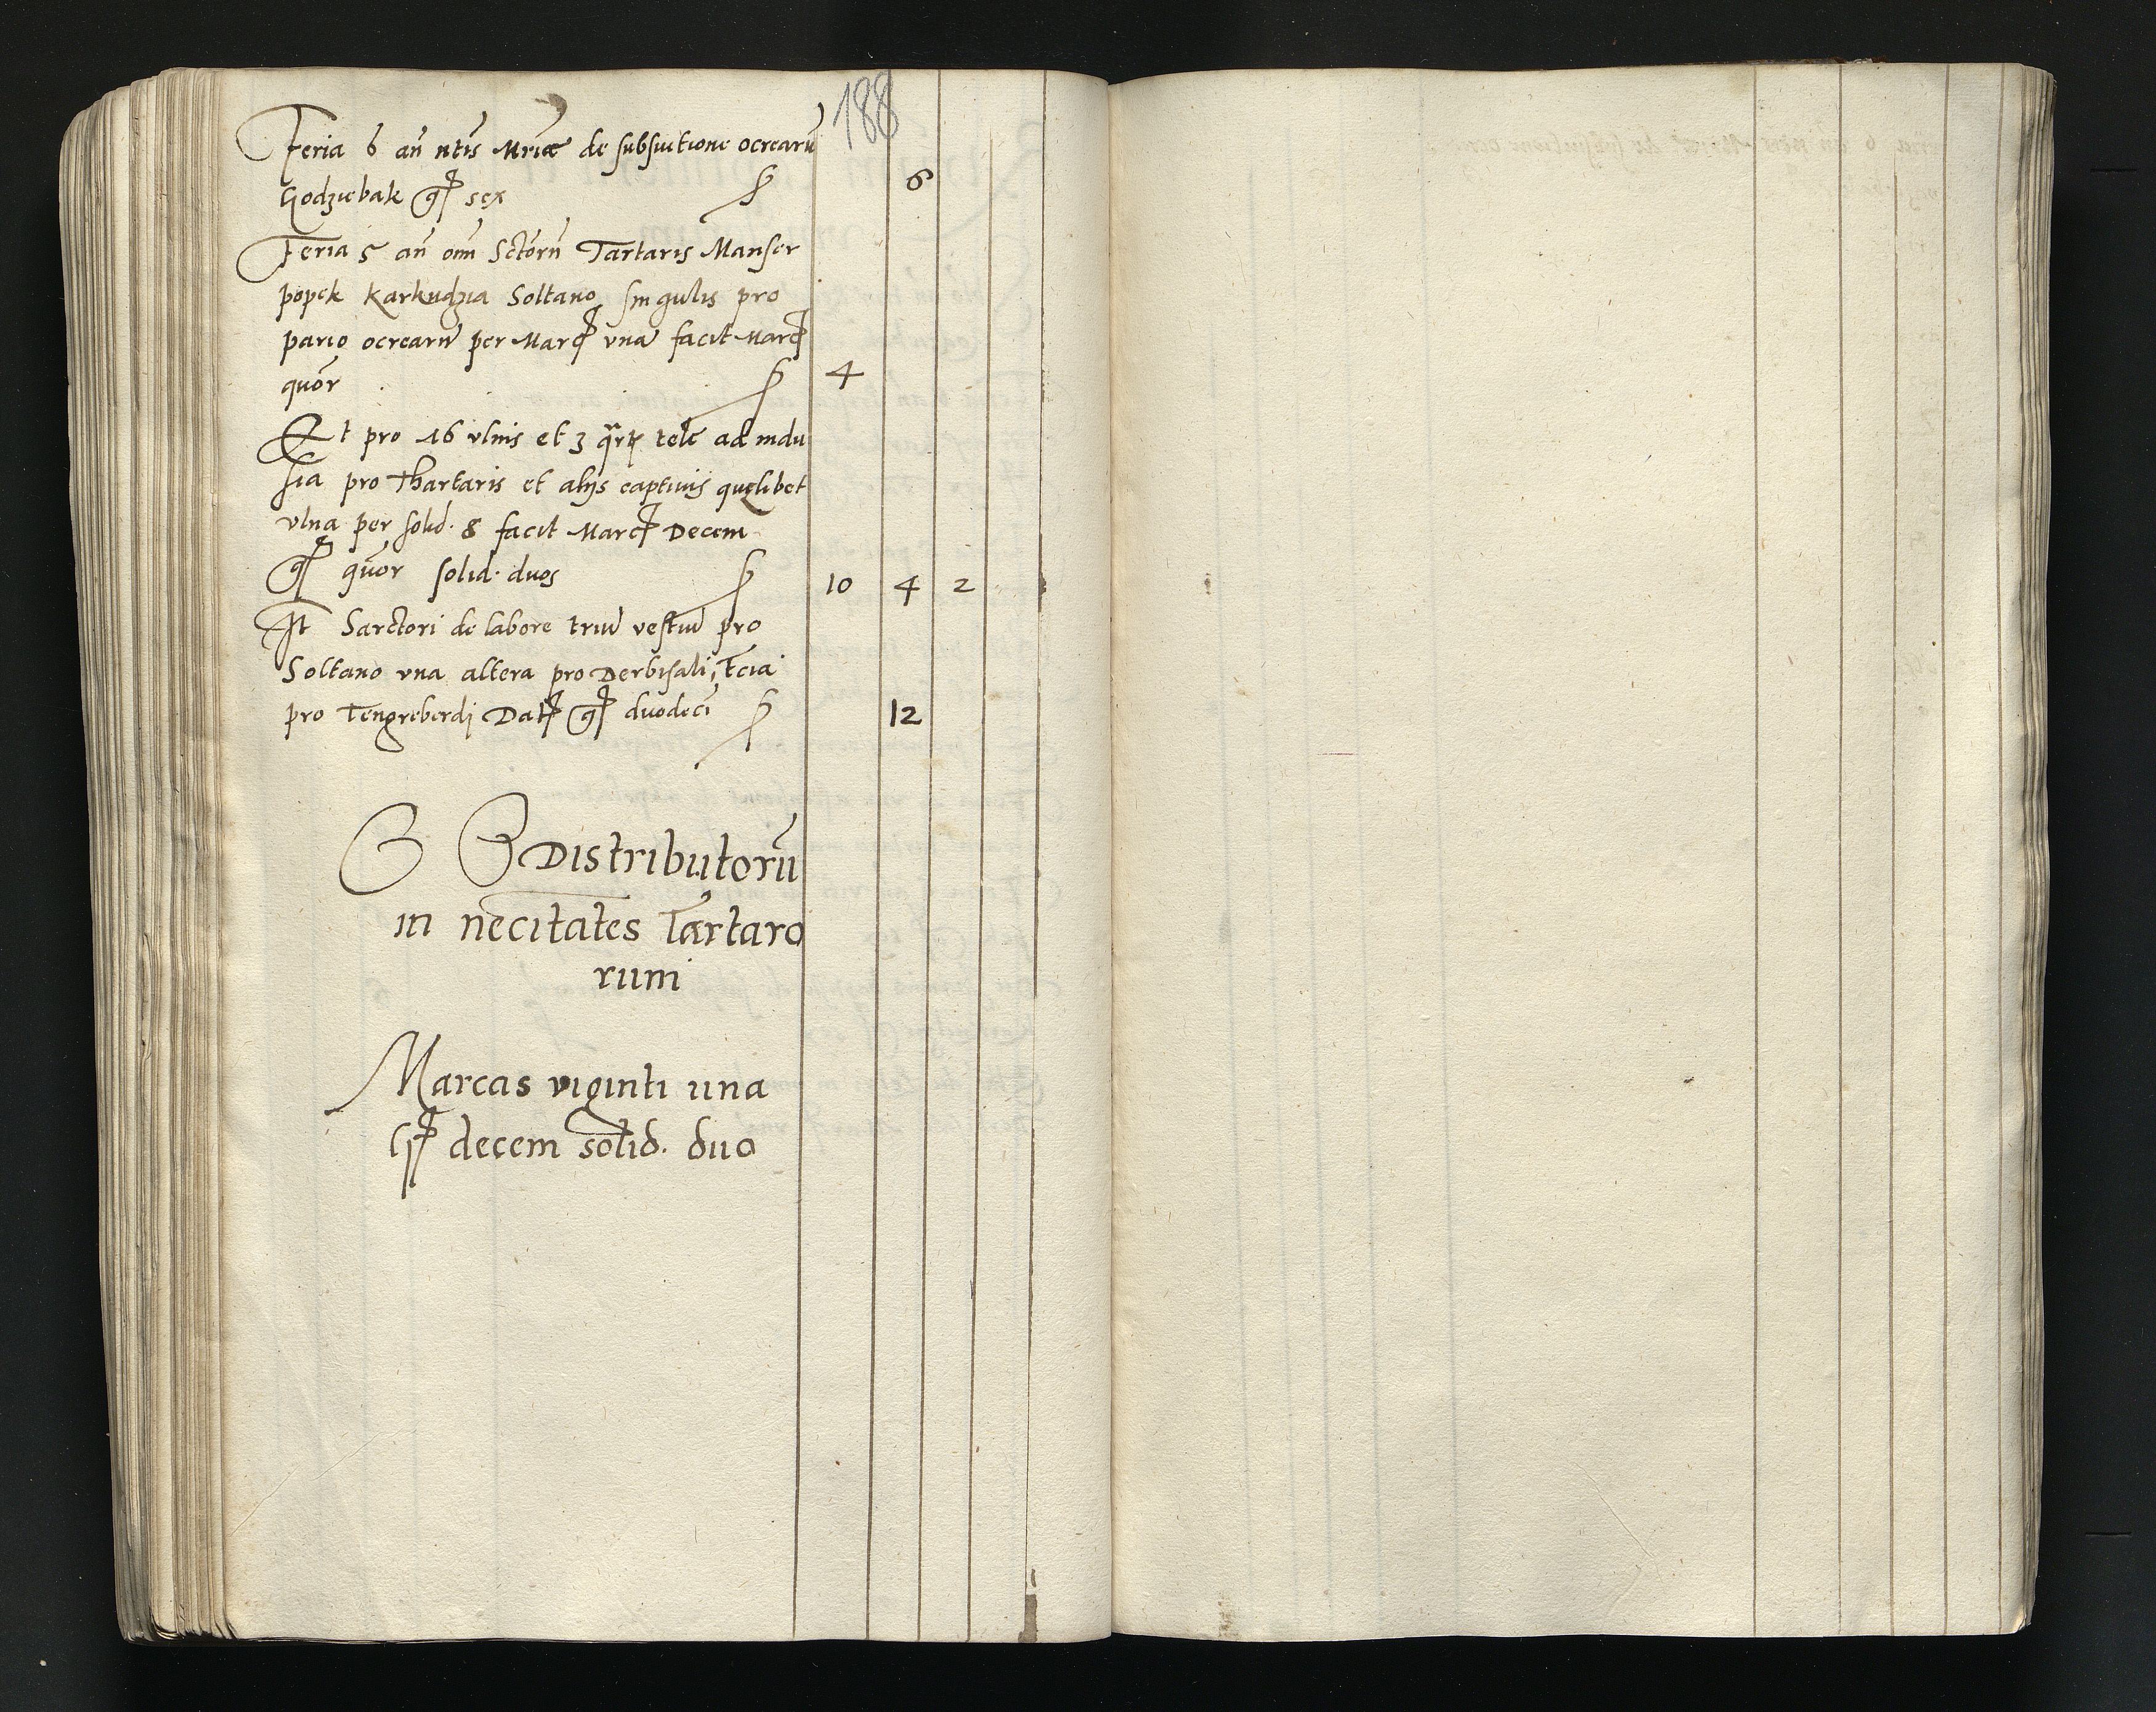 188
Feria 6 an̄ ntis Mriæ de subsutione ocrearū
Hodziebak gr sex 6
Feria 5 an̄ om̄ Sctōrū Tartaris Manser
popek Karkudzia Soltano singulis pro
pario ocrearū per Marc vna facit Marc
quōr 4
Et pro 16 vlnis et 3 qrt tele ad indu
sia pro Thartaris et alijs captiuis quelibet
vlna per solid. 8 facit Marc Decem
gr quōr solid. duos 10 4 2
It Sarctori de labore triū vestiū pro
Soltano vna altera pro Derbisali, tcia
pro Tengreberdj Dat gr duodeci 12
Distributorū
in necitates Tartaro
rum
Marcas viginti una
gr decem solid. duo